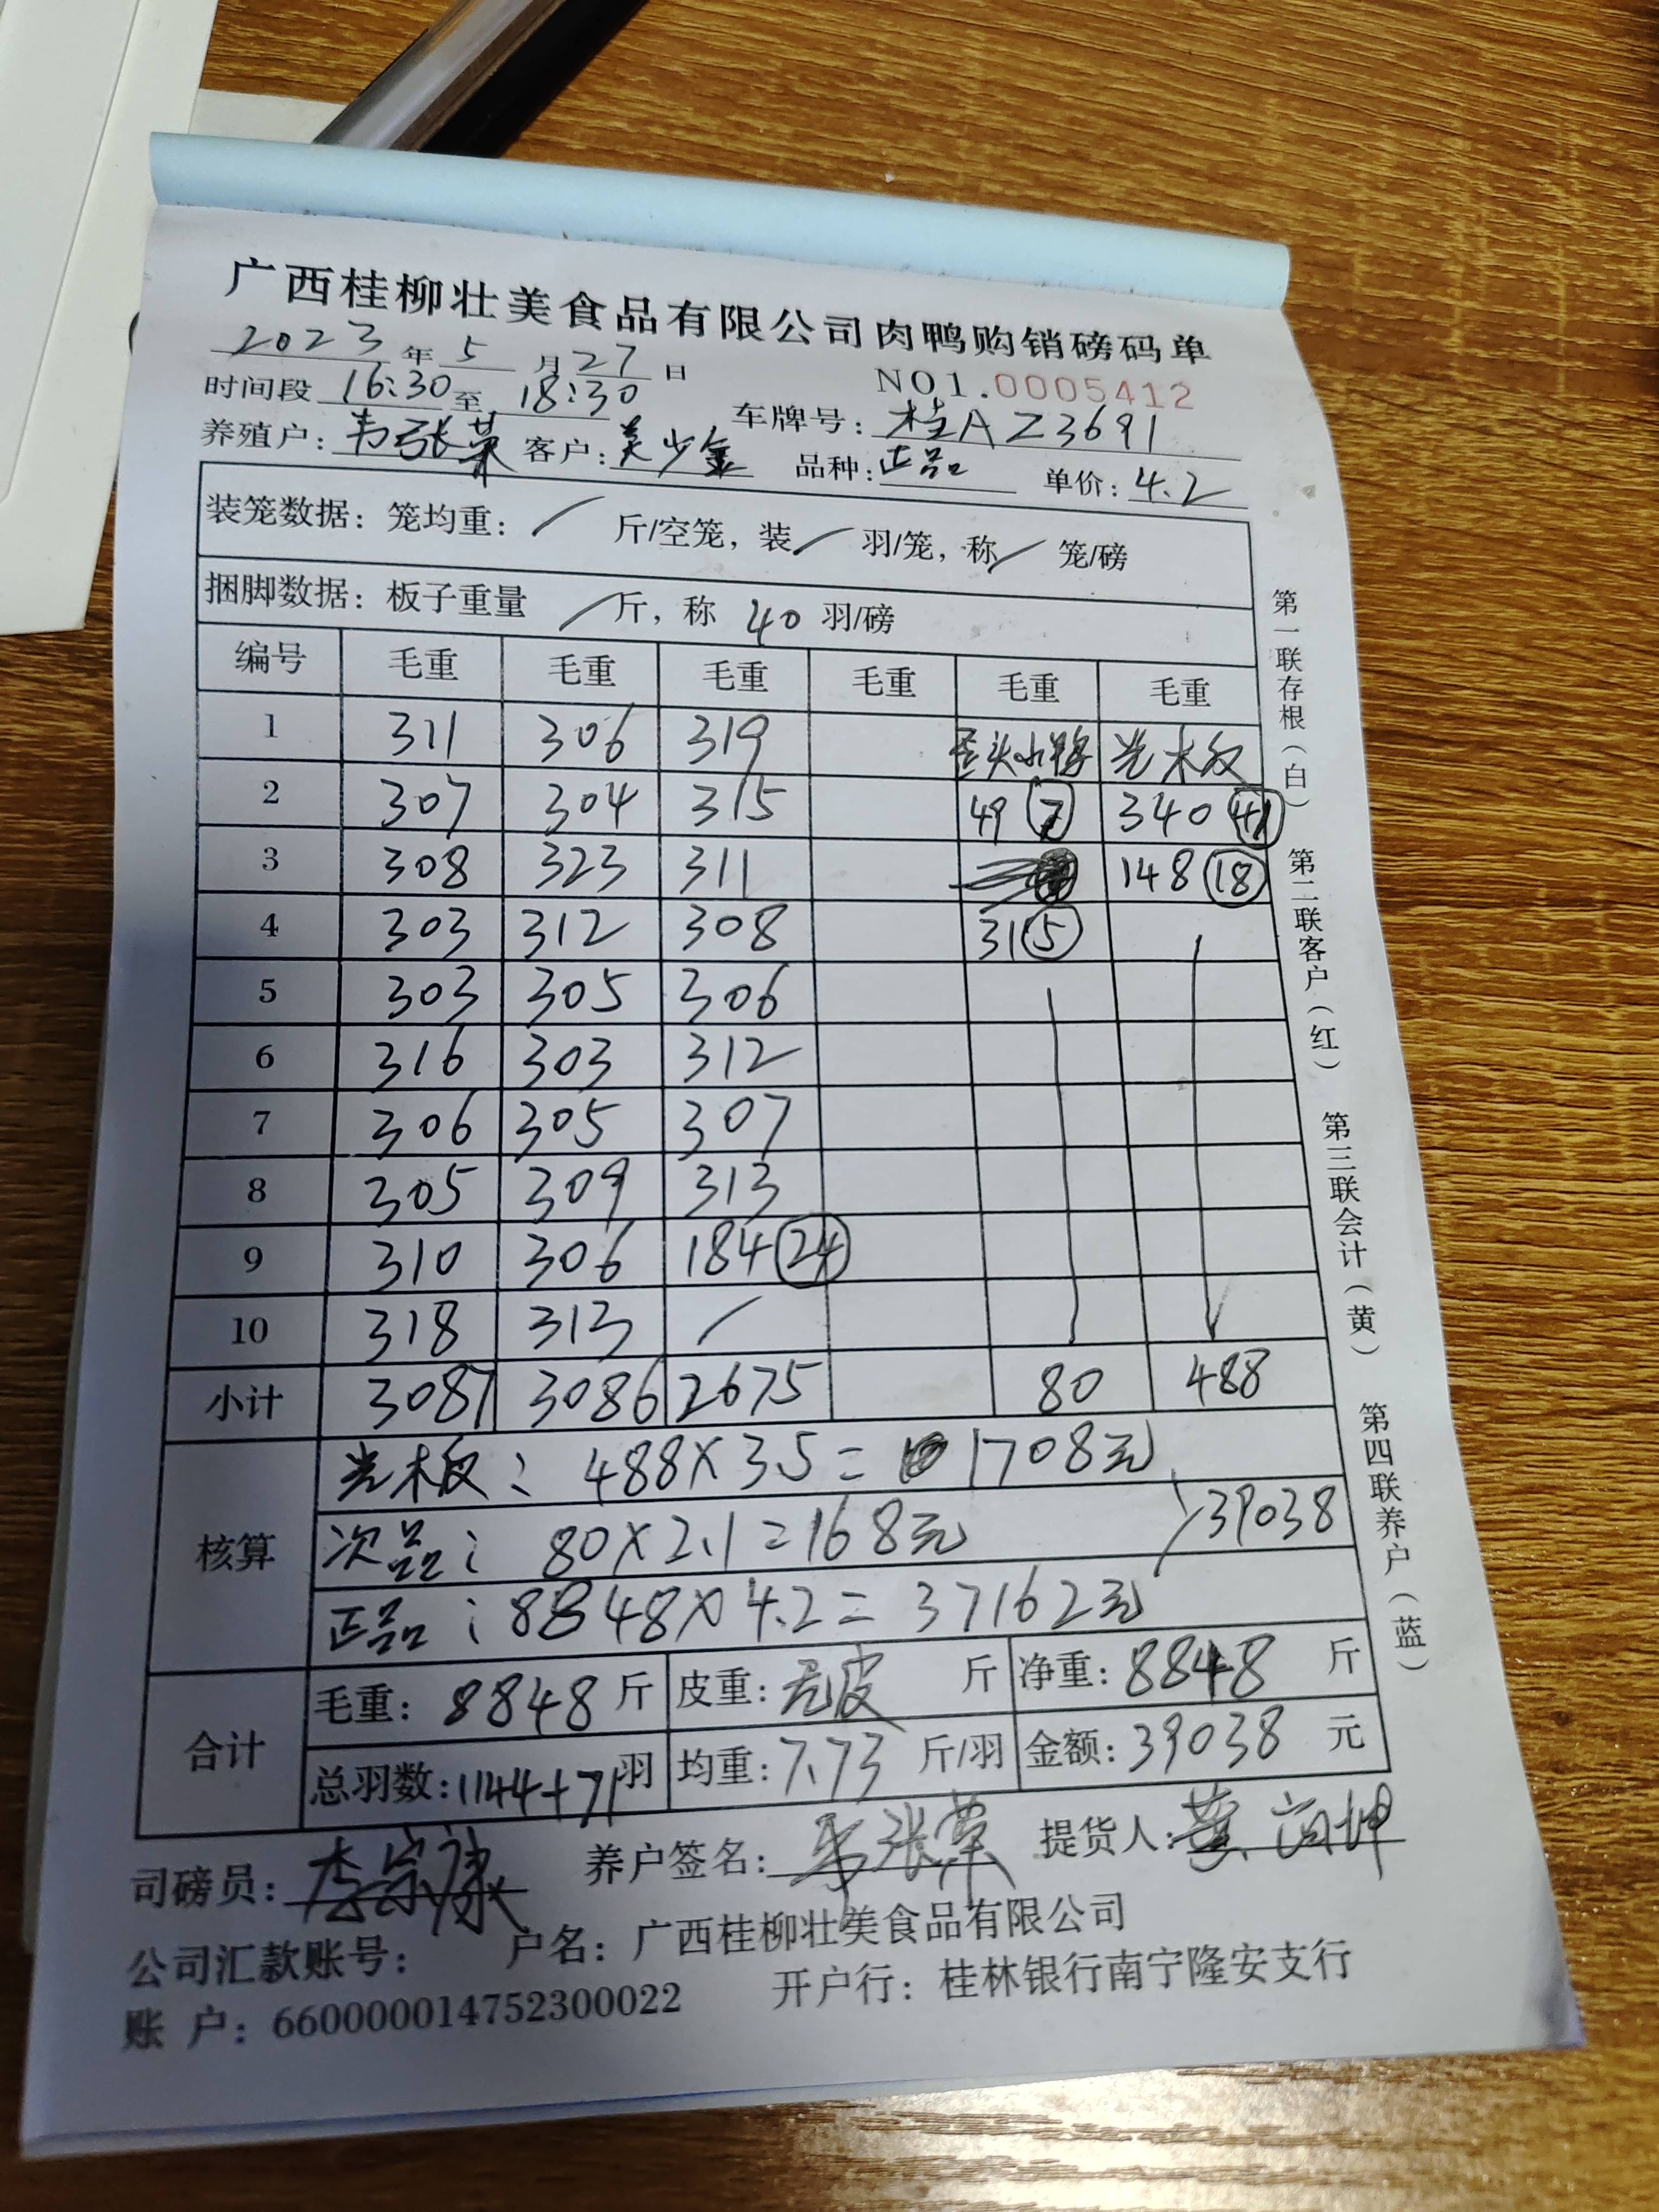 广西桂柳壮美食品有限公司肉鸭购销磅码单
2023年5月27日 NO1.0005412
时间段 16:30至18:30 车牌号:桂AZ3691
养殖户:韦张荣 客户:美少金 品种:正品 单价:4.2
装笼数据:笼均重:/ 斤/空笼,装/羽/笼,称/笼/磅
捆脚数据:板子重量 /斤,称 40 羽/磅
编号 毛重 毛重 毛重 毛重 毛重 毛重
1 311 306 319 光木板
2 307 304 315 49 7 340 41
3 308 323 311 148 18
4 303 312 308 31 5
5 303 305 306
6 316 303 312
7 306 305 307
8 305 309 313
9 310 306 184 24
10 318 313 /
小计 3087 3086 2675 80 488
核算 光木板: 488×3.5= 1708元
次品: 80×2.1=168元 39038
正品:8848×4.2=37162元
合计 毛重:8848斤 皮重:无皮 斤 净重:8848 斤
总羽数:1144+71羽 均重:7.73 斤/羽 金额:39038 元
司磅员:李宗康 养户签名:韦张荣 提货人:
公司汇款账号: 户名:广西桂柳壮美食品有限公司
账 户:660000014752300022 开户行:桂林银行南宁隆安支行
第一联存根(白)
第二联客户(红)
第三联会计(黄)
第四联养户(蓝)